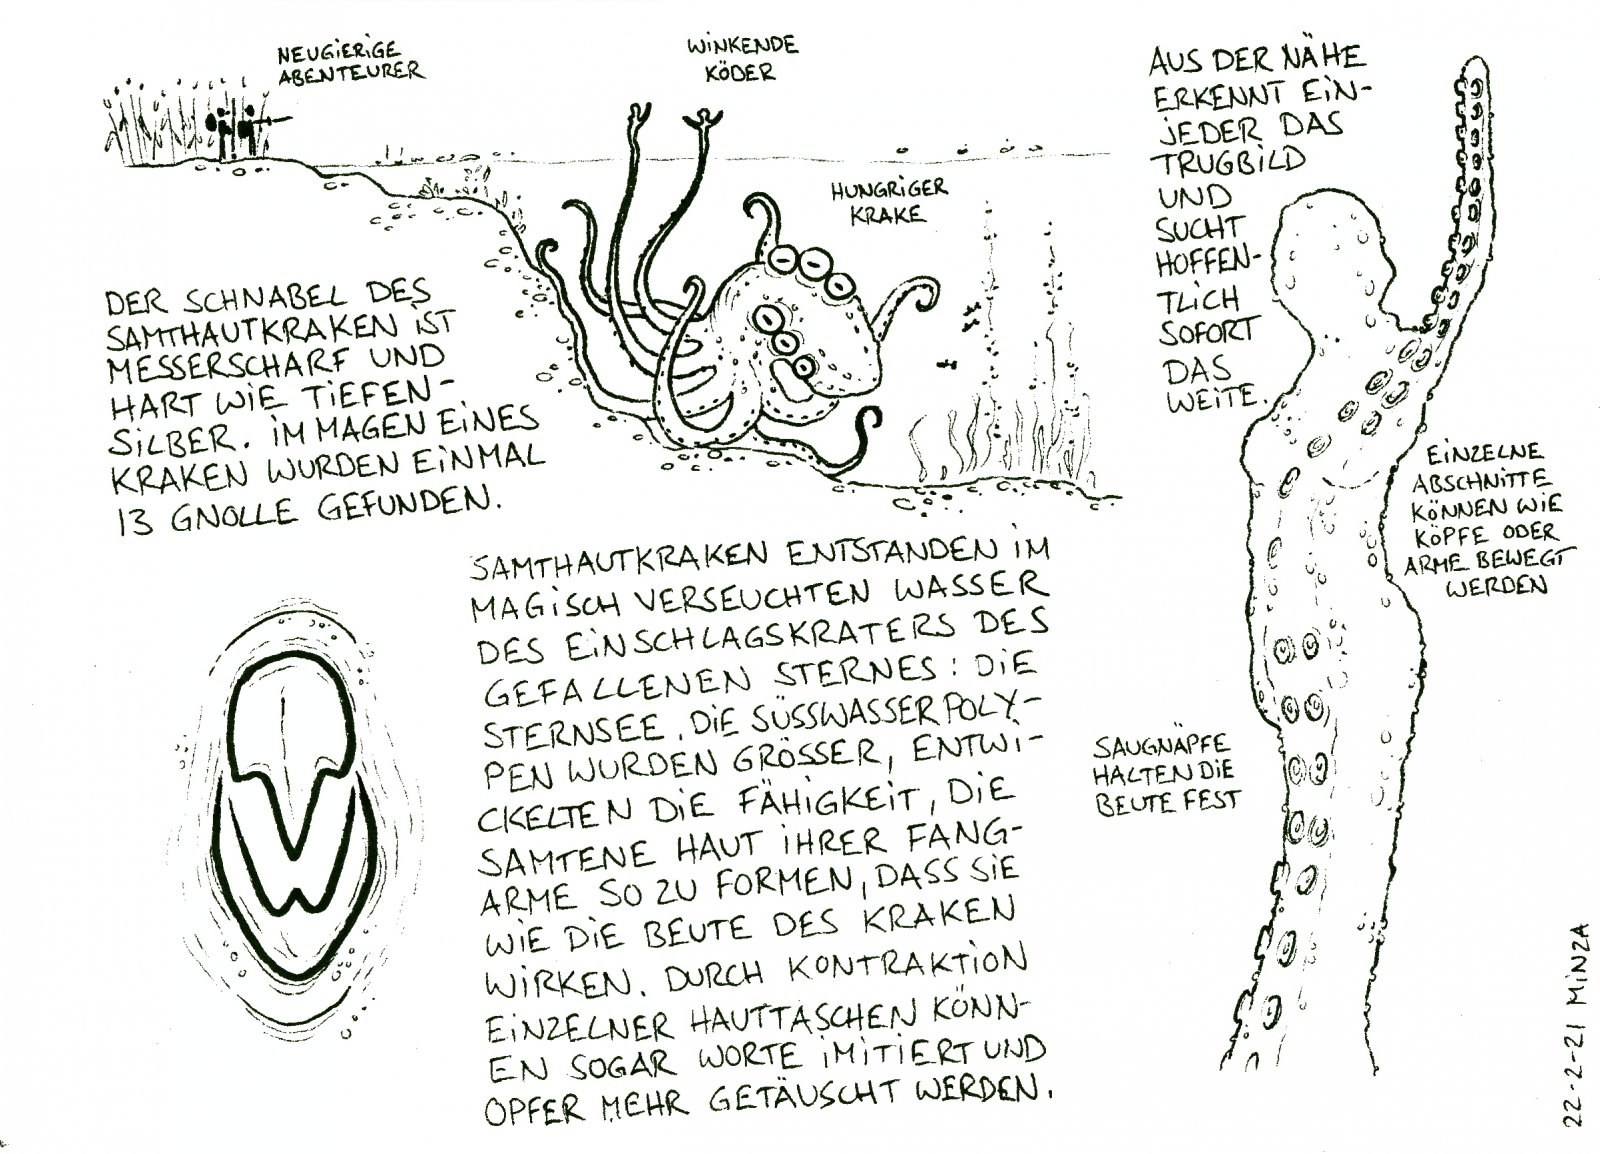 NEUGIERIGE
ABENTEURER
WINKENDE
KÖDER
HUNGRIGER
KRAKE
DER SCHNABEL DES
SAMTHAUTKRAKEN IST
MESSERSCHARF UND
HART WIE TIEFEN-
SILBER. IM MAGEN EINES
KRAKEN WURDEN EINMAL
13 GNOLLE GEFUNDEN.
SAMTHAUTKRAKEN ENTSTANDEN IM
MAGISCH VERSEUCHTEN WASSER
DES EINSCHLAGSKRATERS DES
GEFALLENEN STERNES: DIE
STERNSEE. DIE SÜSSWASSERPOLY-
PEN WURDEN GRÖSSER, ENTWI-
CKELTEN DIE FÄHIGKEIT, DIE
SAMTENE HAUT IHRER FANG-
ARME SO ZU FORMEN, DASS SIE
WIE DIE BEUTE DES KRAKEN
WIRKEN. DURCH KONTRAKTION
EINZELNER HAUTTASCHEN KÖNN-
EN SOGAR WORTE IMITIERT UND
OPFER MEHR GETÄUSCHT WERDEN.
AUS DER NÄHE
ERKENNT EIN-
JEDER DAS
TRUGBILD
UND
SUCHT
HOFFEN-
TLICH
SOFORT
DAS
WEITE.
EINZELNE
ABSCHNITTE
KÖNNEN WIE
KÖPFE ODER
ARME BEWEGT
WERDEN
SAUGNÄPFE
HALTEN DIE
BEUTE FEST
22-2-21 MINZA